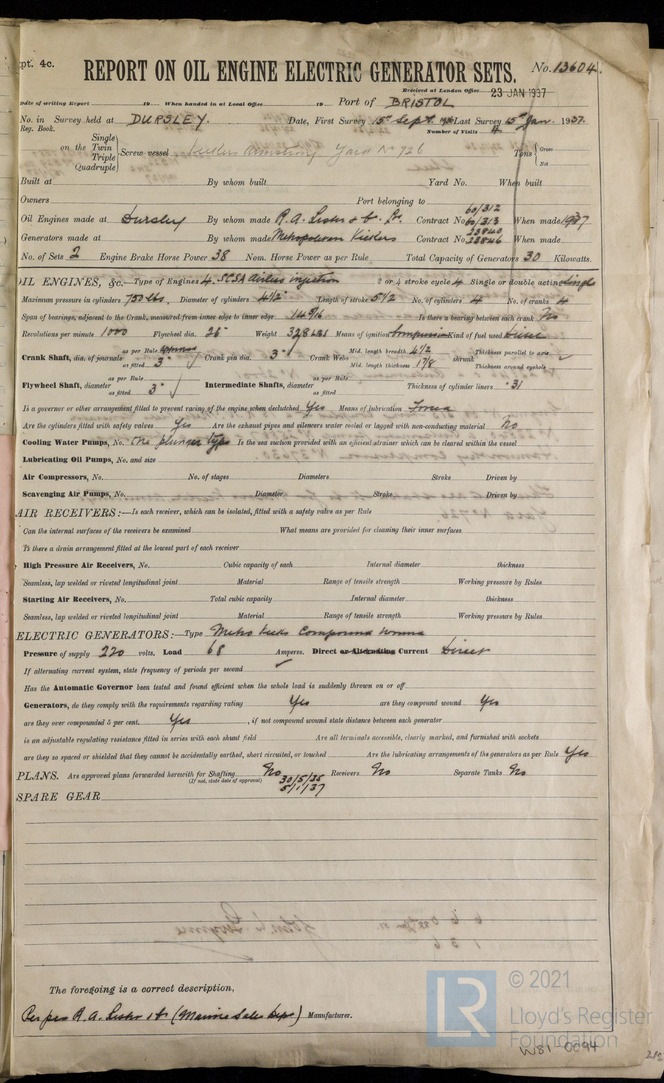 pt. 4c.
REPORT ON OIL ENGINE ELECTRIC GENERATOR SETS. No. 13604.
Received at London Office 23 JAN 1937
Date of writing Report 19 When handed in at Local Office 19 Port of BRISTOL
No. in Survey held at DURSLEY. Date, First Survey 15th Sept. Last Survey 15th Jan. 1937.
Reg. Book. Number of Visits 4
on the Single Twin Triple Quadruple Screw vessel Vickers Armstrong Yard No 726 Tons Gross Net
Built at By whom built Yard No. When built
Owners Port belonging to
Oil Engines made at Dursley By whom made R. A. Lister & Co. Contract No. 60/312 60/313 When made 1937
Generators made at By whom made Metropolitan Vickers Contract No. 23840 23846 When made
No. of Sets 2 Engine Brake Horse Power 38 Nom. Horse Power as per Rule Total Capacity of Generators 30 Kilowatts.
OIL ENGINES, &c. Type of Engines 4. SCSA Airless injection 2 or 4 stroke cycle 4 Single or double acting Single
Maximum pressure in cylinders 750 lbs. Diameter of cylinders 4 1/2" Length of stroke 5 1/2 No. of cylinders 4 No. of cranks 4
Span of bearings, adjacent to the Crank, measured from inner edge to inner edge Is there a bearing between each crank No
Revolutions per minute 1000 Flywheel dia. 26" Weight 328 LBS Means of ignition Compression Kind of fuel used Diesel
Crank Shaft, dia. of journals as per Rule Approved as fitted 3" Crank pin dia. 3" Crank Webs Mid. length breadth 4 1/2 Mid. length thickness 1 7/8 shrunk Thickness parallel to axis Thickness around eyehole
Flywheel Shaft, diameter as per Rule as fitted 3" Intermediate Shafts, diameter as per Rule as fitted Thickness of cylinder liners .31
Is a governor or other arrangement fitted to prevent racing of the engine when declutched Yes Means of lubrication Forced
Are the cylinders fitted with safety valves Yes Are the exhaust pipes and silencers water cooled or lagged with non-conducting material No
Cooling Water Pumps, No. One plunger type Is the sea suction provided with an efficient strainer which can be cleared within the vessel
Lubricating Oil Pumps, No. and size
Air Compressors, No. No. of stages Diameters Stroke Driven by
Scavenging Air Pumps, No. Diameter Stroke Driven by
AIR RECEIVERS:—Is each receiver, which can be isolated, fitted with a safety valve as per Rule
Can the internal surfaces of the receivers be examined What means are provided for cleaning their inner surfaces
Is there a drain arrangement fitted at the lowest part of each receiver
High Pressure Air Receivers, No. Cubic capacity of each Internal diameter thickness
Seamless, lap welded or riveted longitudinal joint Material Range of tensile strength Working pressure by Rules
Starting Air Receivers, No. Total cubic capacity Internal diameter thickness
Seamless, lap welded or riveted longitudinal joint Material Range of tensile strength Working pressure by Rules
ELECTRIC GENERATORS:—Type Metro Vicks Compound wound
Pressure of supply 220 volts. Load 68 Amperes. Direct or Alternating Current Direct
If alternating current system, state frequency of periods per second
Has the Automatic Governor been tested and found efficient when the whole load is suddenly thrown on or off
Generators, do they comply with the requirements regarding rating Yes are they compound wound Yes
are they over compounded 5 per cent. Yes, if not compound wound state distance between each generator
is an adjustable regulating resistance fitted in series with each shunt field Are all terminals accessible, clearly marked, and furnished with sockets
are they so spaced or shielded that they cannot be accidentally earthed, short circuited, or touched Are the lubricating arrangements of the generators as per Rule Yes
PLANS. Are approved plans forwarded herewith for Shafting No Receivers No Separate Tanks No
(If not, state date of approval) 30/5/35
5/1/37
SPARE GEAR
The foregoing is a correct description,
Per pro R. A. Lister & Co (Marine Sales Dept) Manufacturer.
LR
© 2021
Lloyd's Register
Foundation
W81-0094